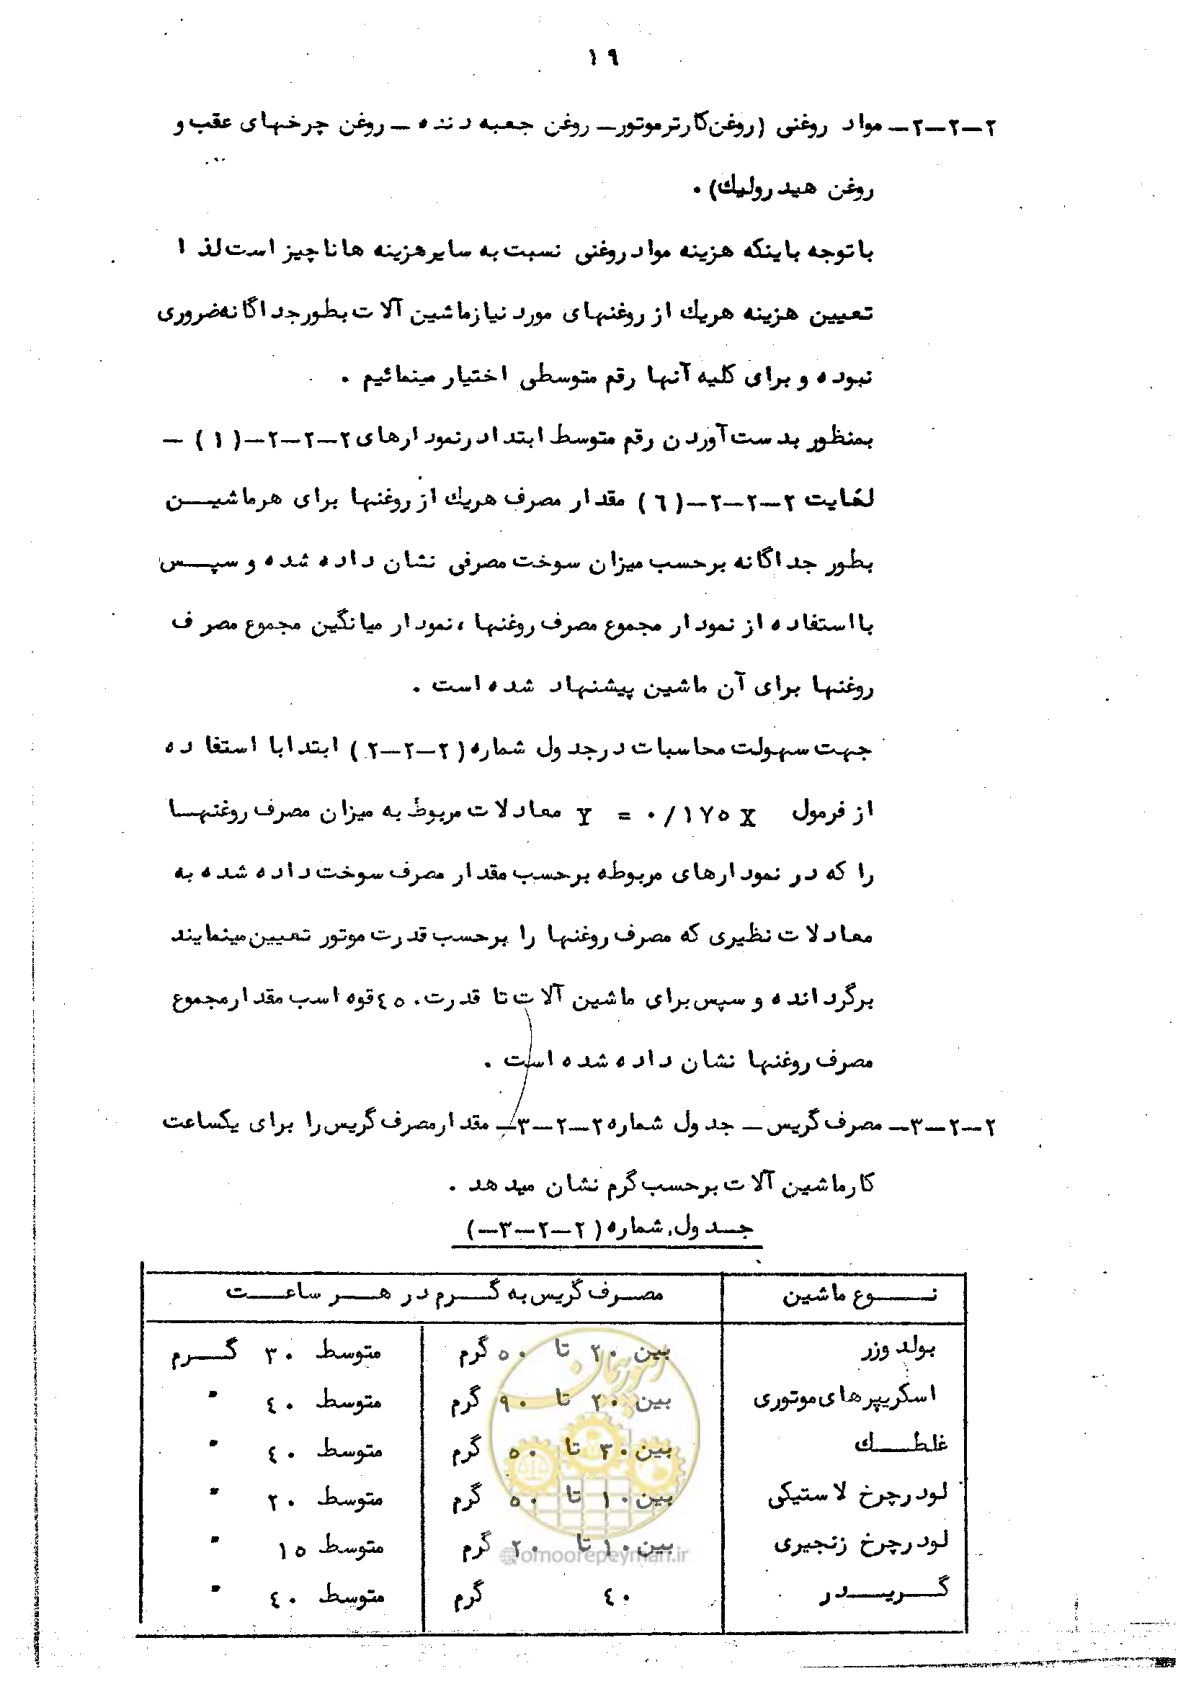 ۱۹
۲-۲-۲- مواد روغنی (روغن کارتر موتور - روغن جعبه دنده - روغن چرخهای عقب و
روغن هیدرولیك) .
با توجه باینکه هزینه مواد روغنی نسبت به سایر هزینه ها ناچیز است لذا
تعیین هزینه هریك از روغنهای مورد نیاز ماشین آلات بطور جداگانه ضروری
نبوده و برای کلیه آنها رقم متوسطی اختیار مینمائیم .
بمنظور بدست آوردن رقم متوسط ابتدا در نمودارهای ۲-۲-۲-(۱) -
لغایت ۲-۲-۲-(٦) مقدار مصرف هریك از روغنها برای هر ماشین
بطور جداگانه برحسب میزان سوخت مصرفی نشان داده شده و سپس
با استفاده از نمودار مجموع مصرف روغنها ، نمودار میانگین مجموع مصرف
روغنها برای آن ماشین پیشنهاد شده است .
جهت سهولت محاسبات در جدول شماره (۲-۲-۲) ابتدا با استفاده
از فرمول Y = ۰/۱۷۵ X معادلات مربوط به میزان مصرف روغنها
را که در نمودارهای مربوطه برحسب مقدار مصرف سوخت داده شده به
معادلات نظیری که مصرف روغنها را برحسب قدرت موتور تعیین مینمایند
برگردانده و سپس برای ماشین آلات تا قدرت ٤۵۰ قوه اسب مقدار مجموع
مصرف روغنها نشان داده شده است .
۲-۲-۳- مصرف گریس - جدول شماره ۲-۲-۳- مقدار مصرف گریس را برای یکساعت
کار ماشین آلات برحسب گرم نشان میدهد .
جدول شماره (۲-۲-۳-)
نوع ماشین مصرف گریس به گرم در هر ساعت
بولدوزر بین ۲۰ تا ۵۰ گرم متوسط ۳۰ گرم
اسکریپرهای موتوری بین ۲۰ تا ۹۰ گرم متوسط ٤۰ "
غلطك بین ۳۰ تا ۵۰ گرم متوسط ٤۰ "
لودر چرخ لاستیکی بین ۱۰ تا ۵۰ گرم متوسط ۲۰ "
لودر چرخ زنجیری بین ۱۰ تا ۲۰ گرم متوسط ۱۵ "
گریدر ٤۰ گرم متوسط ٤۰ "
امور پیمان
@omoorepeyman.ir